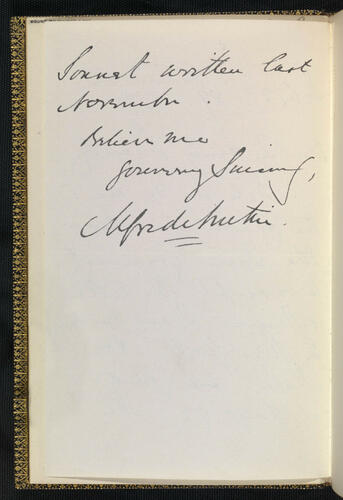 Sonnet written last
November.
Believe me
yours very Sincerely,
Alfred Austin.